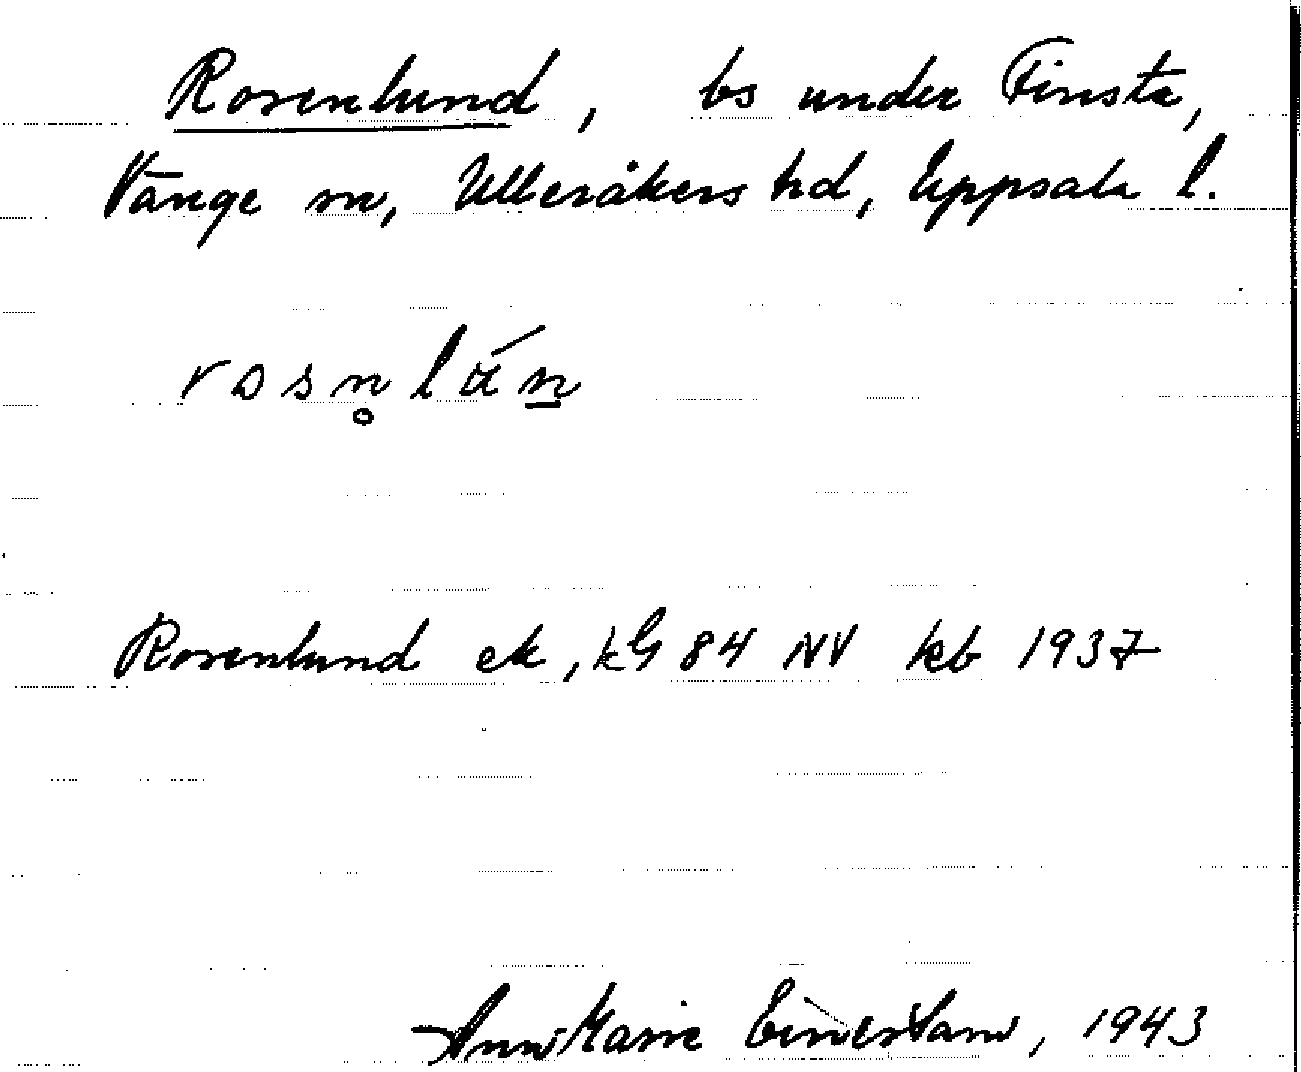 Rosenlund, bs under Finsta,
Vänge sn, Ulleråkers hd, Uppsala l.
Rosenlund ek, kG 84 NV kb 1937
Ann Marie, 1943